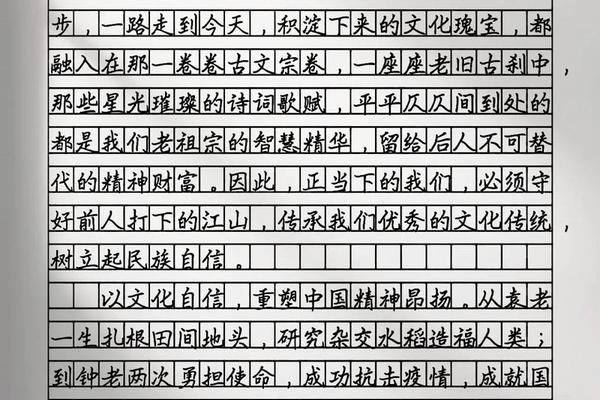 步，一路走到今天，积淀下来的文化瑰宝，都
融入在那一卷卷古文宗卷，一座座老旧古刹中，
那些星光璀璨的诗词歌赋，平平仄仄间到处的
都是我们老祖宗的智慧精华，留给后人不可替
代的精神财富。因此，正当下的我们，必须守
好前人打下的江山，传承我们优秀的文化传统，
树立起民族自信。
以文化自信，重塑中国精神昂扬。从袁老
一生扎根田间地头，研究杂交水稻造福人类；
到钟老两次勇担使命，成功抗击疫情，成就国